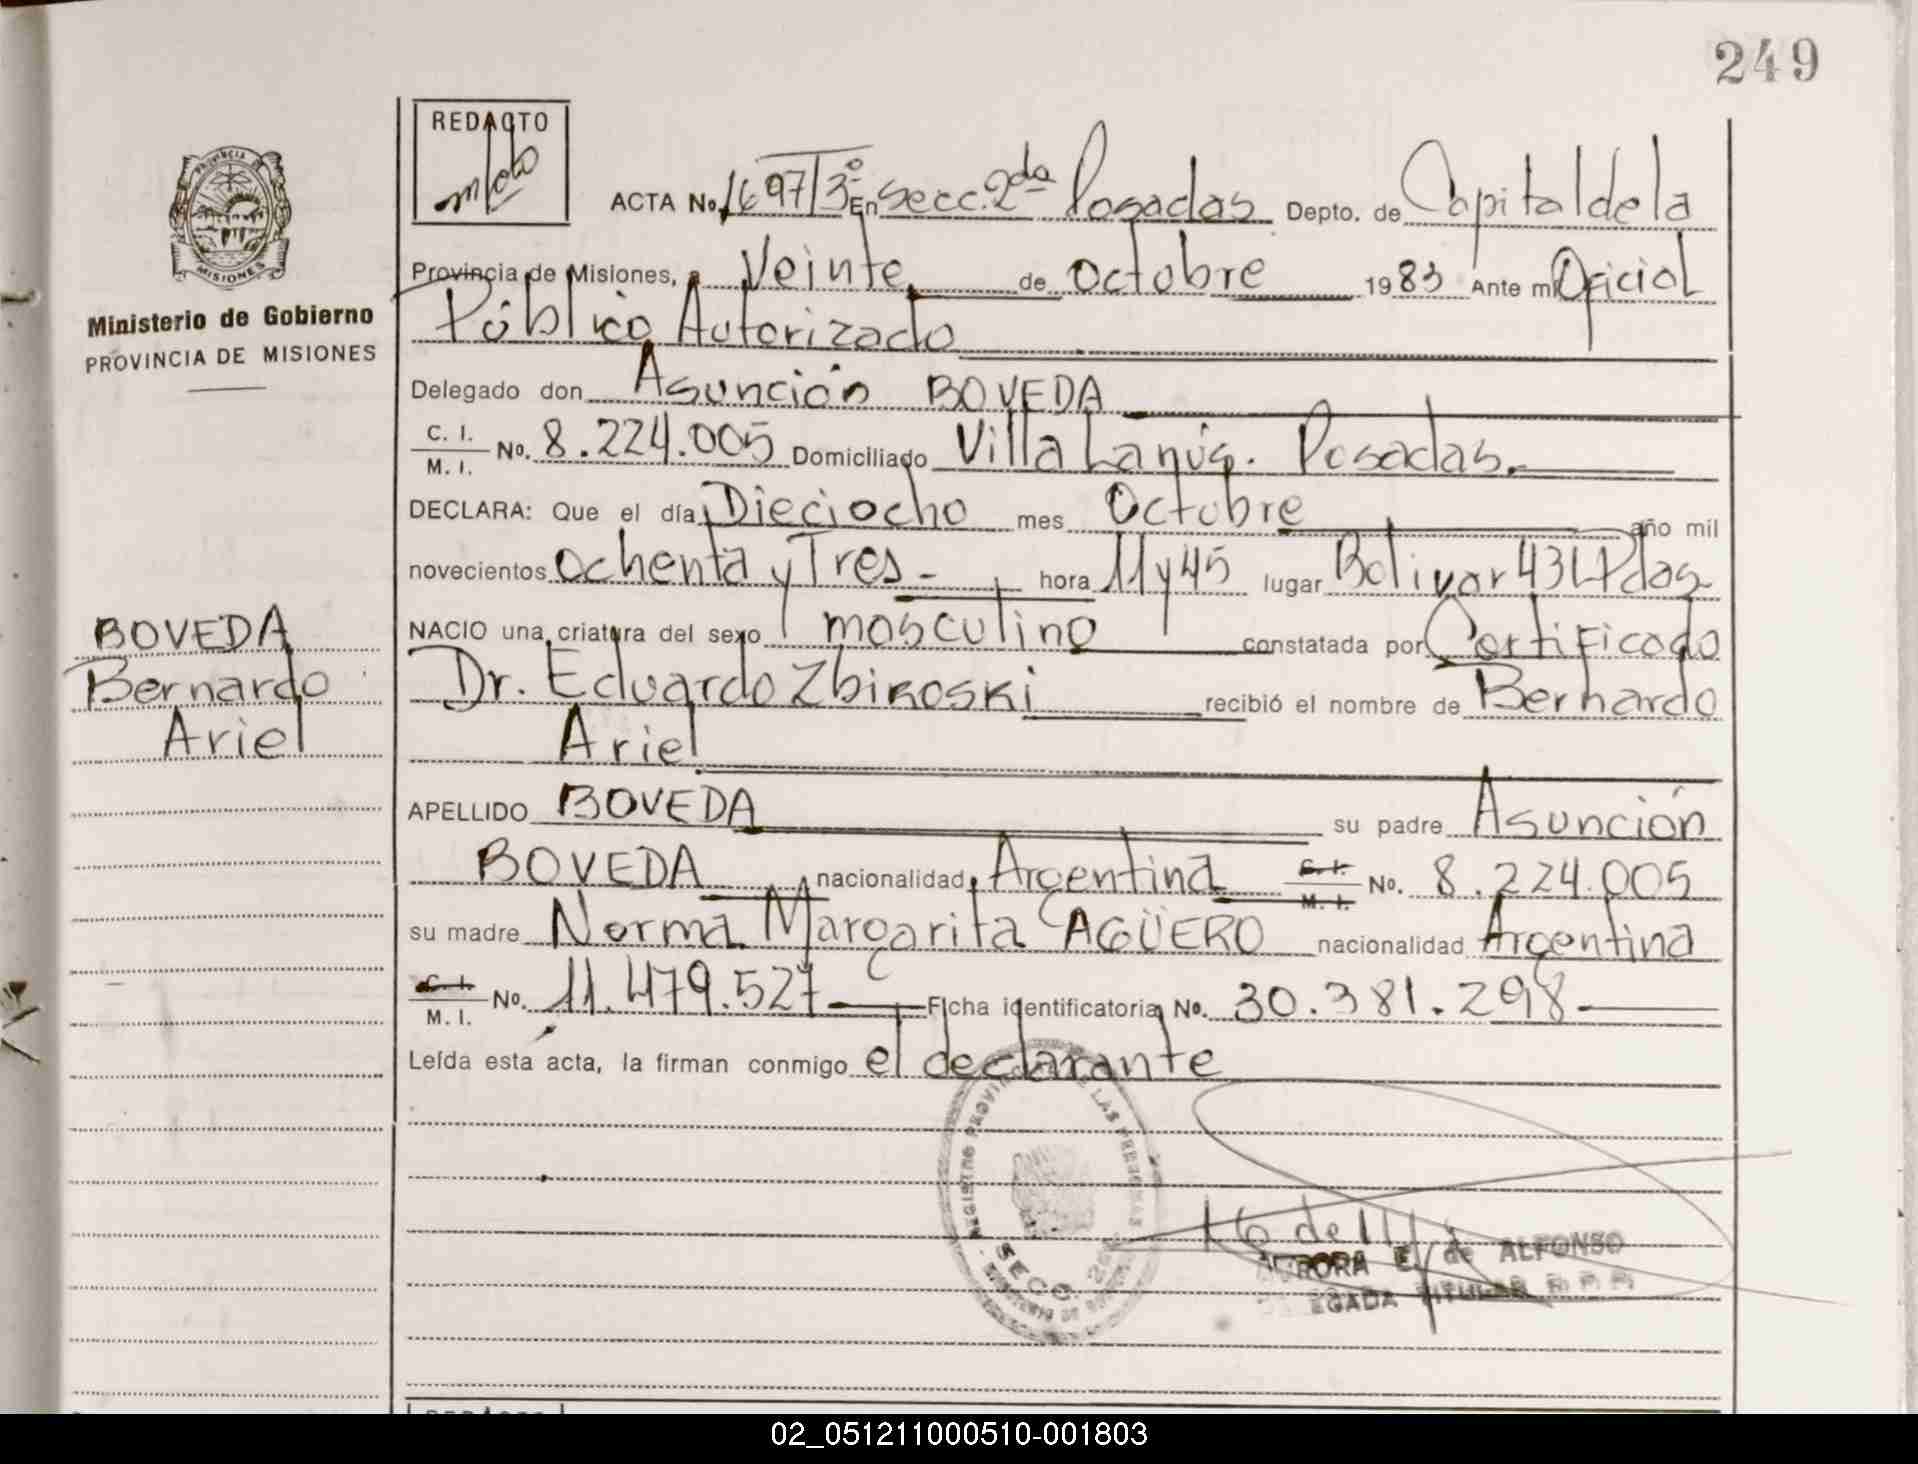 249
REDACTO
PROVINCIA DE
MISIONES
Ministerio de Gobierno
PROVINCIA DE MISIONES
BOVEDA
Bernardo
Ariel
ACTA No. 1697/3º En secc. 2da Posadas Depto. de Capital de la
Provincia de Misiones, a Veinte de Octubre 1983 Ante mi Oficial
Público Autorizado
Delegado don Asunción BOVEDA
C. I. / M. I. No. 8.224.005 Domiciliado Villa Lanús. Posadas.
DECLARA: Que el día Dieciocho mes Octubre año mil
novecientos Ochenta y Tres - hora 11 y 45 lugar Bolivar 431 Pdas
NACIO una criatura del sexo masculino constatada por Certificado
Dr. Eduardo Zbikoski recibió el nombre de Bernardo
Ariel
APELLIDO BOVEDA su padre Asunción
BOVEDA nacionalidad Argentina C. I. / M. I. No. 8.224.005
su madre Norma Margarita AGÜERO nacionalidad Argentina
C. I. / M. I. No. 11.479.527 Ficha identificatoria No. 30.381.298
Leída esta acta, la firman conmigo el declarante
REGISTRO PROVINCIAL DE LAS PERSONAS
SECC. 2da
E. de ALFONSO
TITULAR
REDACTO
02_051211000510-001803